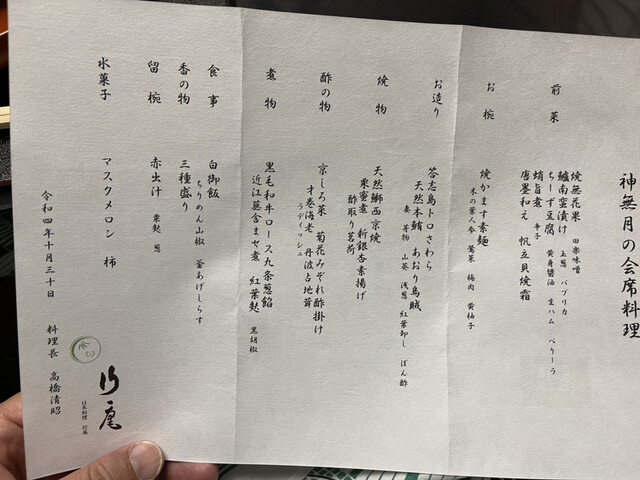 神無月の会席料理
前菜
焼無花果 田楽味噌
鱸南蛮漬け 玉葱 パプリカ
ちーず豆腐 黄身醤油 生ハム べりーう
蛸旨煮 辛子
唐墨和え 帆立貝焼霜
お椀
焼かます素麺
木の葉人参 鶯菜 梅肉 黄柚子
お造り
答志島トロさわら
天然本鮪 あおり烏賊
妻 芽物 山葵 浅葱 紅葉卸し ぽん酢
焼物
天然鰤西京焼
栗蜜煮 新銀杏素揚げ
酢取り茗荷
酢の物
京しろ菜 菊花みぞれ酢掛け
才巻海老 丹波占地茸
ラディッシュ
煮物
黒毛和牛ロース九条葱餡
近江蕪含ませ煮 紅葉麩 黒胡椒
食事
白御飯
ちりめん山椒 釜あげしらす
香の物
三種盛り
留椀
赤出汁 粟麩 葱
水菓子
マスクメロン 柿
令和四年十月三十日
料理長 高橋清昭
行庵
日本料理